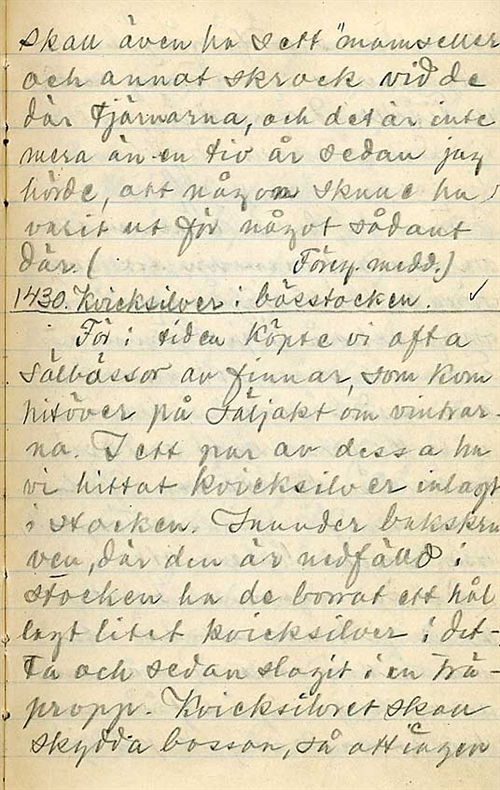 skall även ha sett "mamseller
och annat skrock vid de
där tjärnarna, och det är inte
mera än en tio år sedan jag
hörde, att någon skulle ha
varit ut för något sådant
där. ( Föreg. medd.)
1430. Kvicksilver i bösstocken. ✓
För i tiden köpte vi ofta
sälbössor av finnar, som kom
hitöver på säljakt om vintrar-
na. I ett par av dessa ha
vi hittat kvicksilver inlagt
i stocken. Inunder bakskru
ven, där den är nedfälld i
stocken ha de borrat ett hål
lagt litet kvicksilver i det-
ta och sedan slagit i en trä-
propp. Kvicksilvret skall
skydda bössan, så att ingen